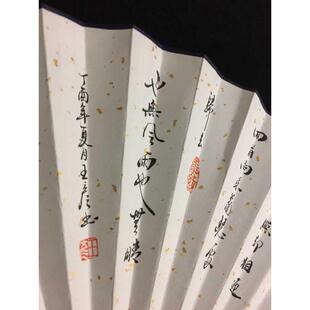 照相迎
回首向来萧瑟处
归去
也无风雨也无晴
丁酉年夏月王彦书